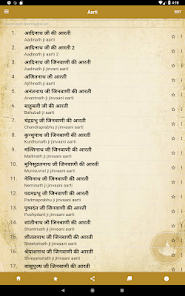 Aarti
1. आदिनाथ जी की आरती
Aadinath ji ki aarti
2. आदिनाथ जी की आरती 2
Aadinath ji aarti 2
3. आदिनाथ जी जिनवाणी की आरती
Aadinath ji jinvaani aarti
4. अजितनाथ जी आरती
Ajitnath ji aarti
5. अनंतनाथ जी जिनवाणी की आरती
Anantnath ji jinvaani aarti
6. बाहुबली जी की आरती
Bahubali ji aarti
7. चंद्रप्रभु जी जिनवाणी की आरती
Chandraprabhu ji jinvaani aarti
8. कुन्थुनाथ जी जिनवाणी की आरती
Kunthunath ji jinvaani aarti
9. मल्लिनाथ जी जिनवाणी की आरती
Mallinath ji jinvaani aarti
10. मुनिसुव्रतनाथ जी जिनवाणी की आरती
Munisuvrat ji jinvaani aarti
11. नेमिनाथ जी जिनवाणी की आरती
Neminath ji jinvaani aarti
12. पदमप्रभु जी जिनवाणी की आरती
Padmaprabhu ji jinvaani aarti
13. पुष्पदंत जी जिनवाणी की आरती
Pushpdant ji jinvaani aarti
14. शांतिनाथ जी जिनवाणी की आरती
Shantinath ji jinvaani aarti
15. शीतलनाथ जी जिनवाणी की आरती
Sheetalnath ji jinvaani aarti
16. श्रेयांसनाथ जी जिनवाणी की आरती
17. वासुपूज्य जी जिनवाणी की आरती